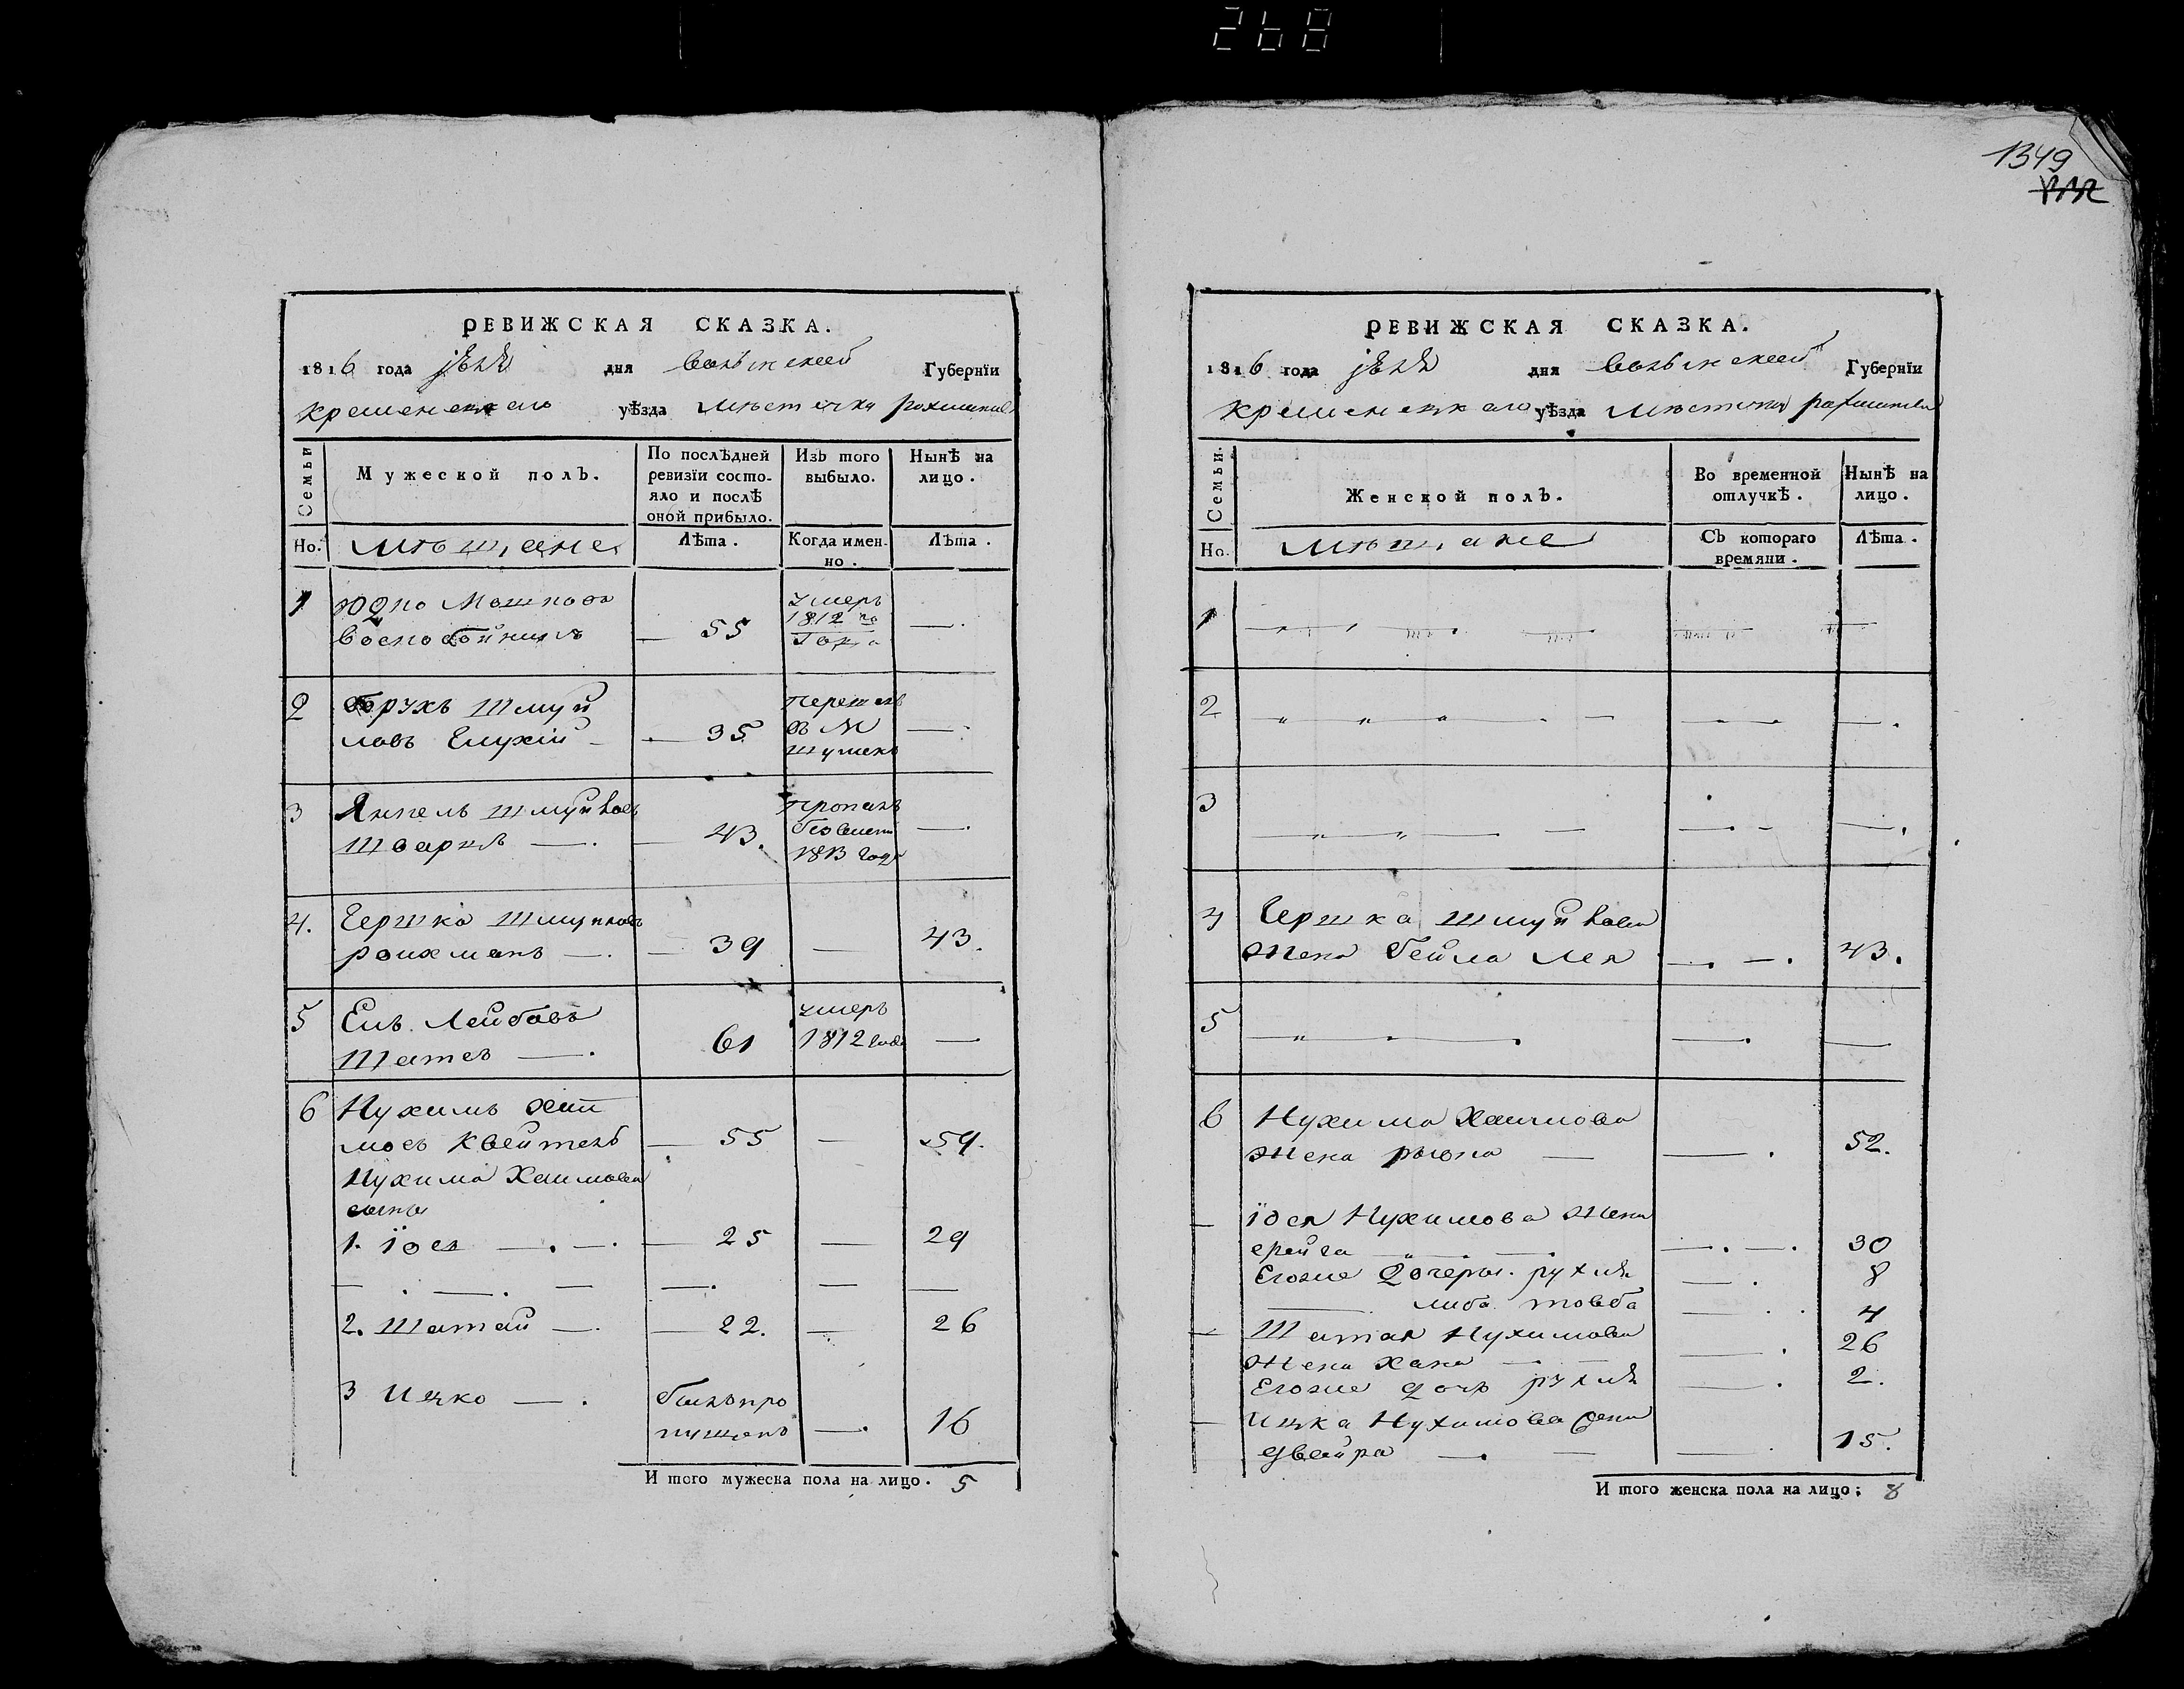 268
1349
РЕВИЖСКАЯ СКАЗКА.
1816 года дня волынской Губернїи
кременецкаго уѣзда местечка рахманова
Семьи
Мужеской полъ.
По послѣдней ревизїи состо-
яло и послѣ
оной прибыло.
Изъ того
выбыло.
Нынѣ на
лицо.
Но.
мещане
Лѣта.
Когда имен-
но.
Лѣта.
1 Юдко Мошков
55
умеръ
1812 го
года
2 Брухъ Шмуй
ловъ
35
перешелъ
въ М
3 Янкель Шмуйлов
Шварцъ
43.
пропалъ
1813 году
4. Гершко Шмуйлов
роихманъ
39
43.
5 Ель Лейбовъ
61
умеръ
1812 года
6 Нухимъ Хаи
мовъ Квейтель
55
59.
Нухима Хаимова
сыны
1. Їося
25
29
2. Шатай
22.
26
3 Ицко
былъ про
пущенъ
16
И того мужеска пола на лицо. 5
РЕВИЖСКАЯ СКАЗКА.
1816 года дня волынской Губернїи
кременецкаго уѣзда местечка рахманова
Семьи.
Женской полъ.
Во временной
отлучкѣ.
Нынѣ на
лицо.
Но.
мещане
Съ котораго
времяни.
Лѣта.
1
2
3
4 Гершка Шмуйлова
жена Бейла Лея
43.
5
6 Нухима Хаимова
жена
52.
Їося Нухимова жена
фрейга
30
Егоже дочеры. рухля
8
либа товба
4
Шатая Нухимова
26
жена Хана
Егоже дочь рухля
2.
Ицка Нухимова жена
двейра
15.
И того женска пола на лицо; 8